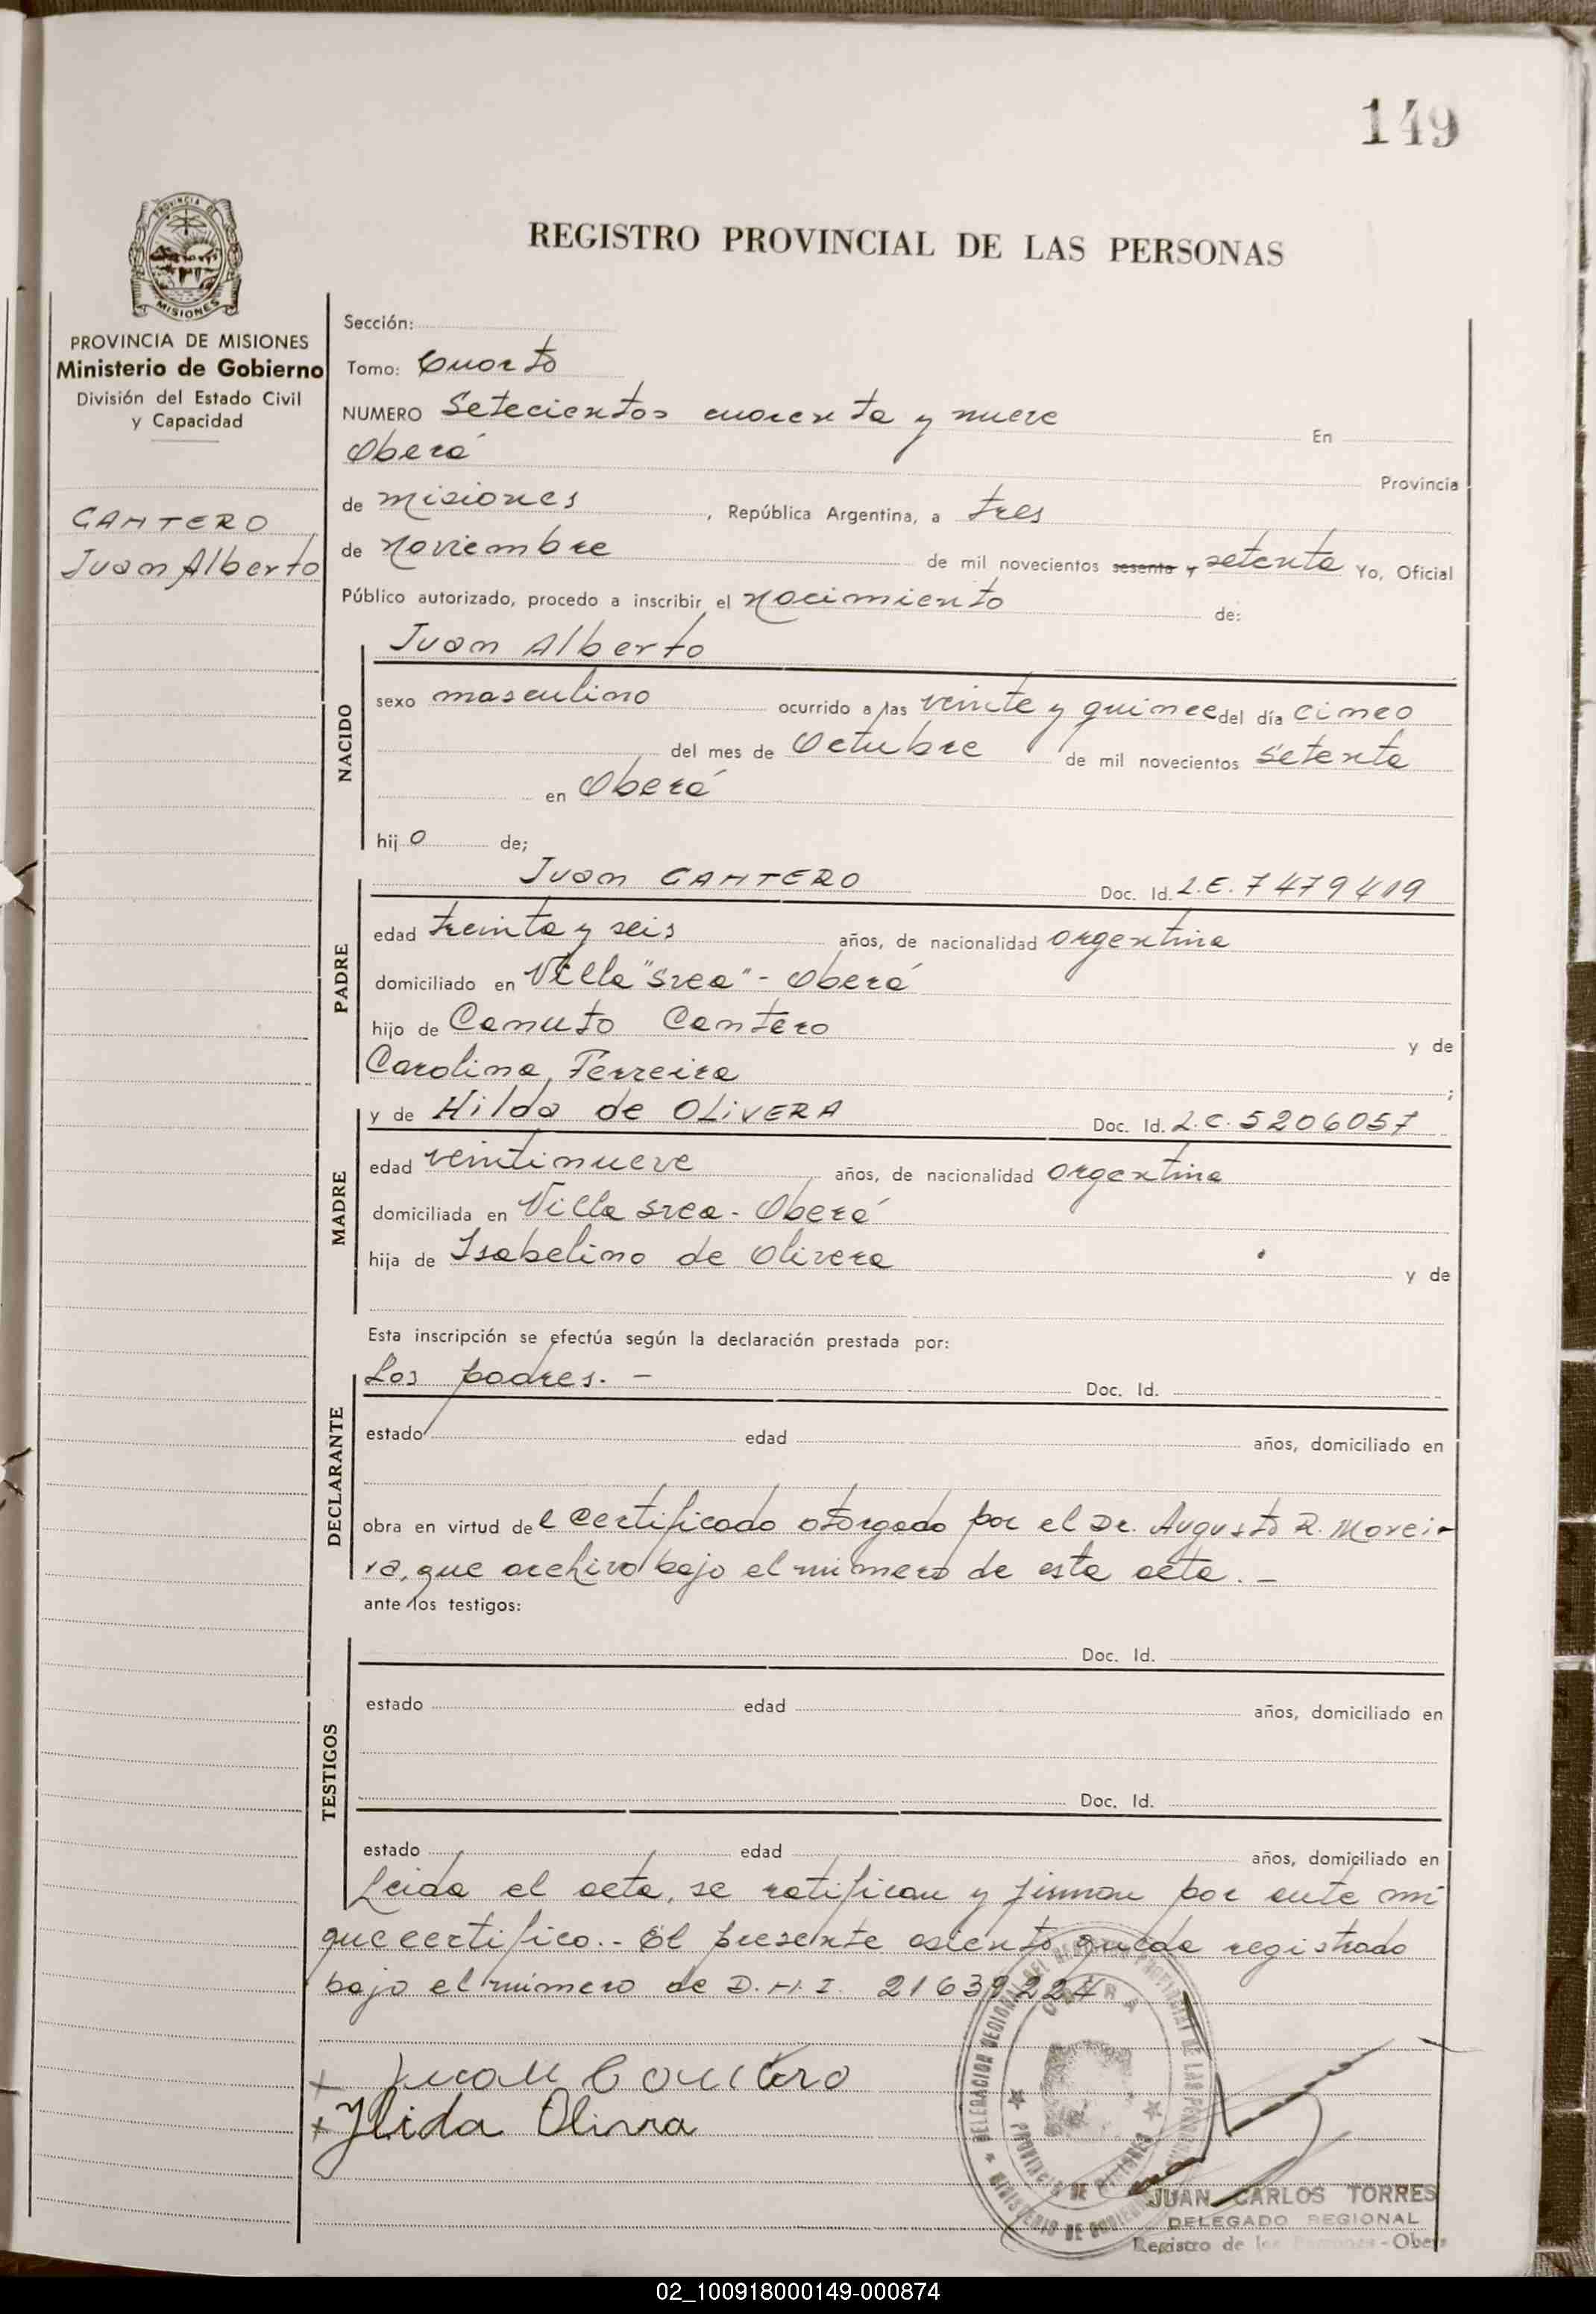 149
REGISTRO PROVINCIAL DE LAS PERSONAS
PROVINCIA DE MISIONES
PROVINCIA DE MISIONES
Ministerio de Gobierno
División del Estado Civil
y Capacidad
CANTERO
Juan Alberto
Sección:
Tomo: Cuarto
NUMERO Setecientos cuarenta y nueve En
Oberá Provincia
de Misiones, República Argentina, a tres
de Noviembre de mil novecientos sesenta y setenta Yo, Oficial
Público autorizado, procedo a inscribir el Nacimiento de:
Juan Alberto
NACIDO
sexo masculino ocurrido a las veinte y quince del día cinco
del mes de Octubre de mil novecientos setenta
en Oberá
hijo de;
Juan CANTERO Doc. Id. L.E. 7479419
PADRE
edad treinta y seis años, de nacionalidad argentina
domiciliado en Villa "Svea" - Oberá
hijo de Canuto Cantero y de
Carolina Ferreira ;
y de Hilda de OLIVERA Doc. Id. L.C. 5206057
MADRE
edad veintinueve años, de nacionalidad argentina
domiciliada en Villa Svea - Oberá
hija de Isabelino de Olivera y de
Esta inscripción se efectúa según la declaración prestada por:
Los padres. - Doc. Id.
DECLARANTE
estado edad años, domiciliado en
obra en virtud del certificado otorgado por el Dr. Augusto R. Morei-
ra, que archivo bajo el número de esta acta. -
ante los testigos:
Doc. Id.
TESTIGOS
estado edad años, domiciliado en
Doc. Id.
estado edad años, domiciliado en
Leida el acta, se ratifican y firman por ante mí
que certifico.- El presente asiento queda registrado
bajo el número de D.N.I. 21639224
+ Juan Cantero
+ Jlida Olivra
DELEGACION REGIONAL DEL REGISTRO PROVINCIAL DE LAS PERSONAS
OBERA
PROVINCIA DE MISIONES
MINISTERIO DE GOBIERNO
JUAN CARLOS TORRES
DELEGADO REGIONAL
Registro de las Personas - Oberá
02_100918000149-000874